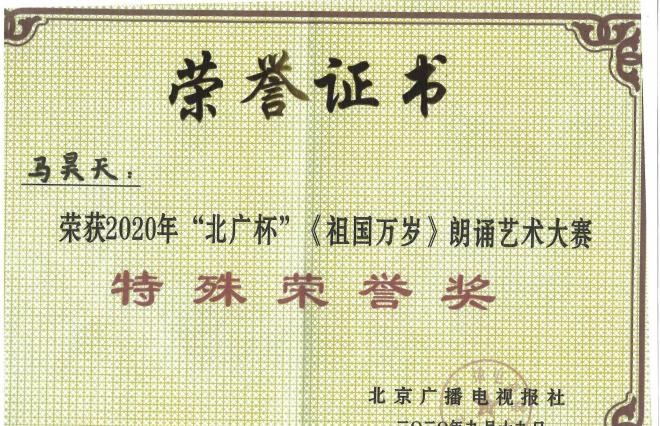 荣誉证书
马昊天：
荣获2020年“北广杯”《祖国万岁》朗诵艺术大赛
特殊荣誉奖
北京广播电视报社
二〇二〇年九月十九日